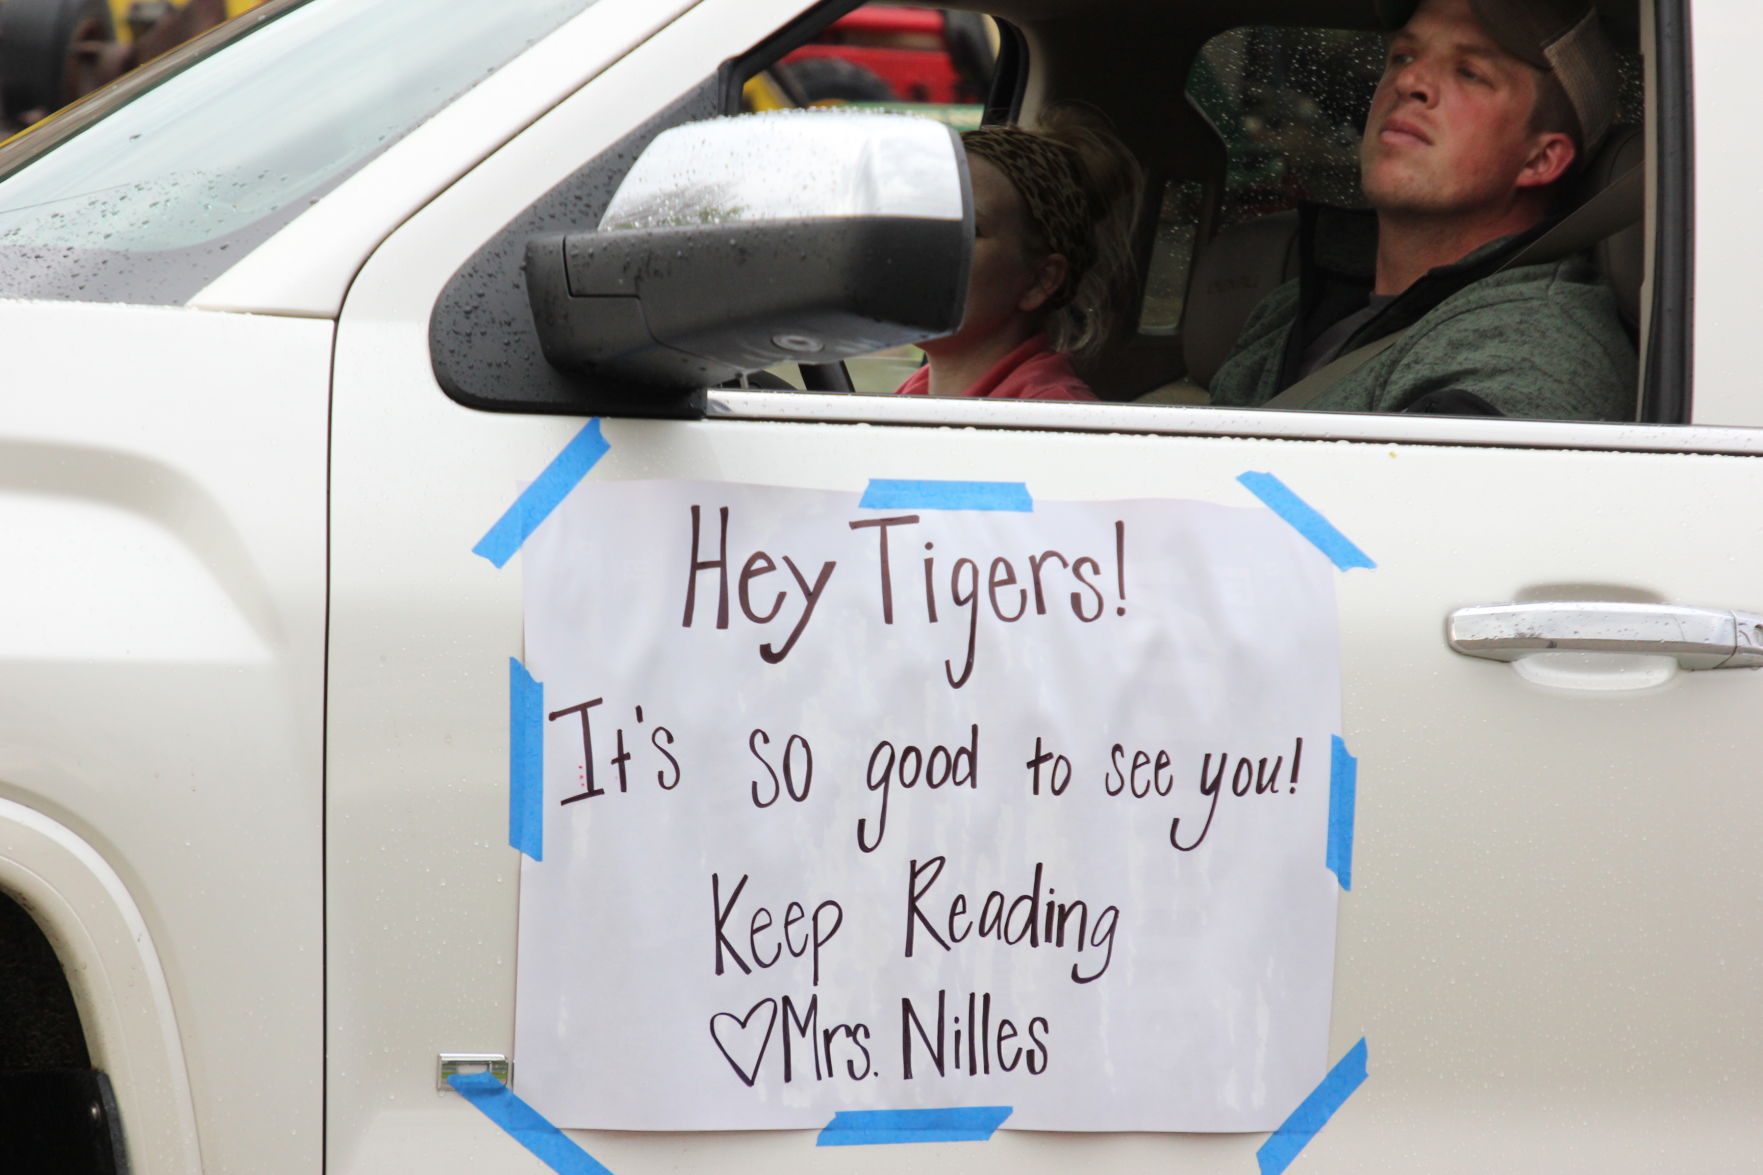 Hey Tigers!
It's so good to see you!
Keep Reading
♡Mrs. Nilles